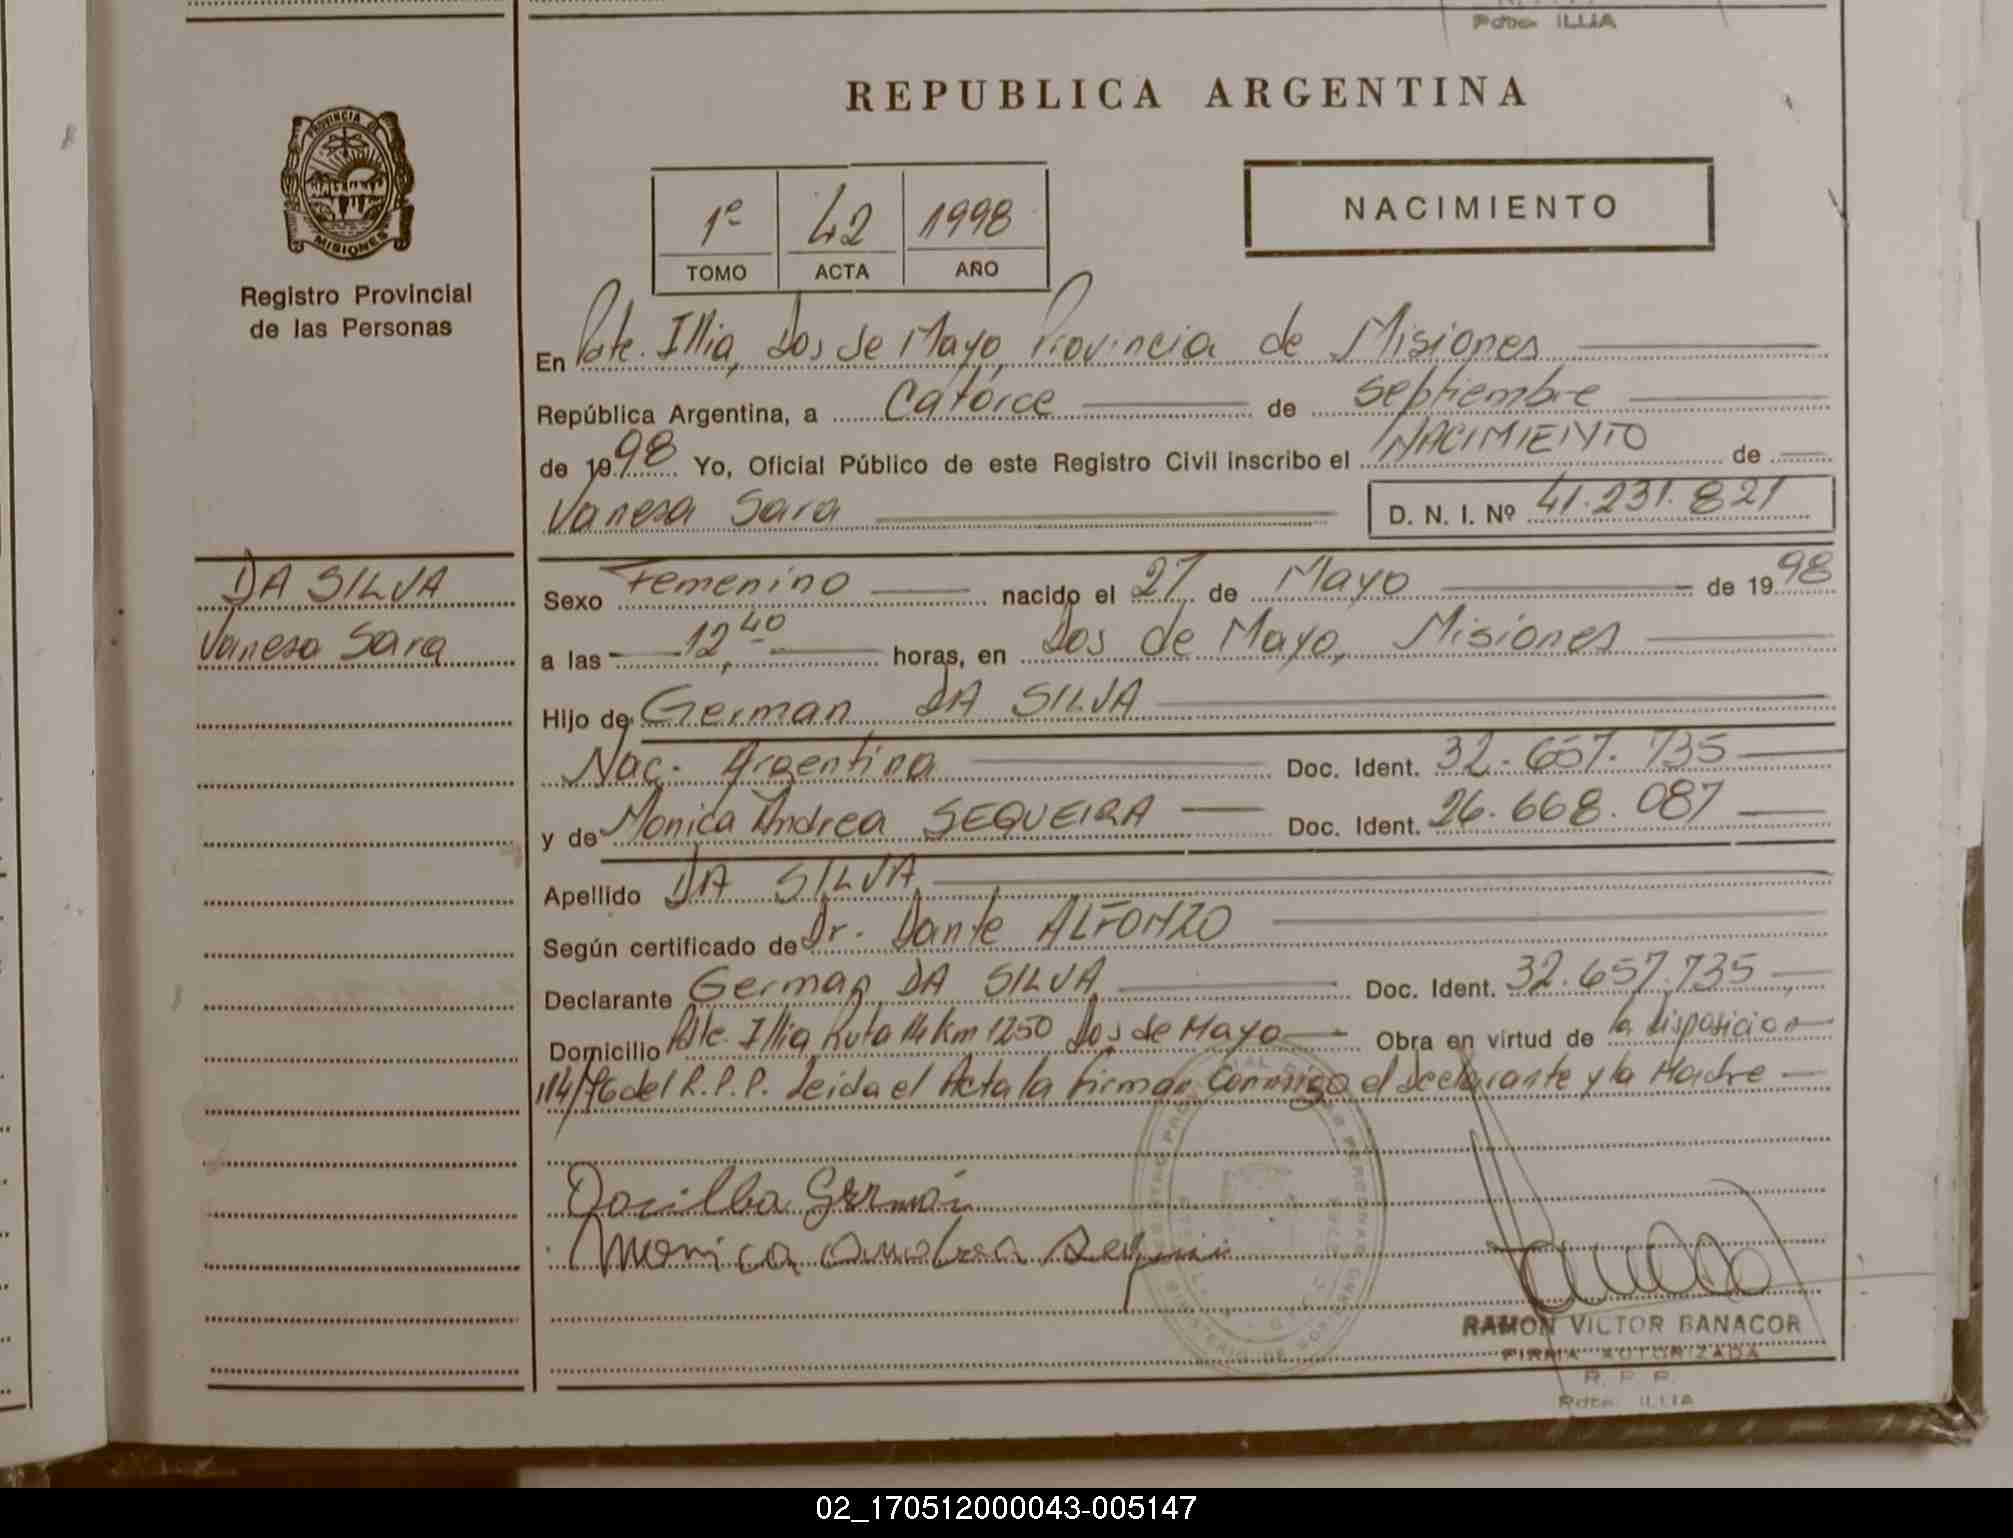 Pdte. ILLIA
REPUBLICA ARGENTINA
PROVINCIA DE
MISIONES
Registro Provincial
de las Personas
1º 42 1998
TOMO ACTA AÑO
NACIMIENTO
En Pdte. Illia, Dos de Mayo, Provincia de Misiones
República Argentina, a Catorce de septiembre
de 1998 Yo, Oficial Público de este Registro Civil inscribo el NACIMIENTO de
Vanesa Sara D. N. I. Nº 41.231.821
DA SILVA
Vanesa Sara
Sexo Femenino nacido el 27 de Mayo de 1998
a las 12,40 horas, en Dos de Mayo, Misiones
Hijo de German DA SILVA
Nac. Argentina Doc. Ident. 32.657.735
y de Monica Andrea SEQUEIRA Doc. Ident. 26.668.087
Apellido DA SILVA
Según certificado de Dr. Dante ALFONZO
Declarante German DA SILVA Doc. Ident. 32.657.735
Domicilio Pdte. Illia Ruta 14 Km 1250 Dos de Mayo Obra en virtud de la disposicion
114/96 del R.P.P. Leida el Acta la firman Conmigo el declarante y la Madre
Dacilba German
Monica
RAMON VICTOR BANACOR
FIRMA AUTORIZADA
R. P. P.
Pdte. ILLIA
02_170512000043-005147